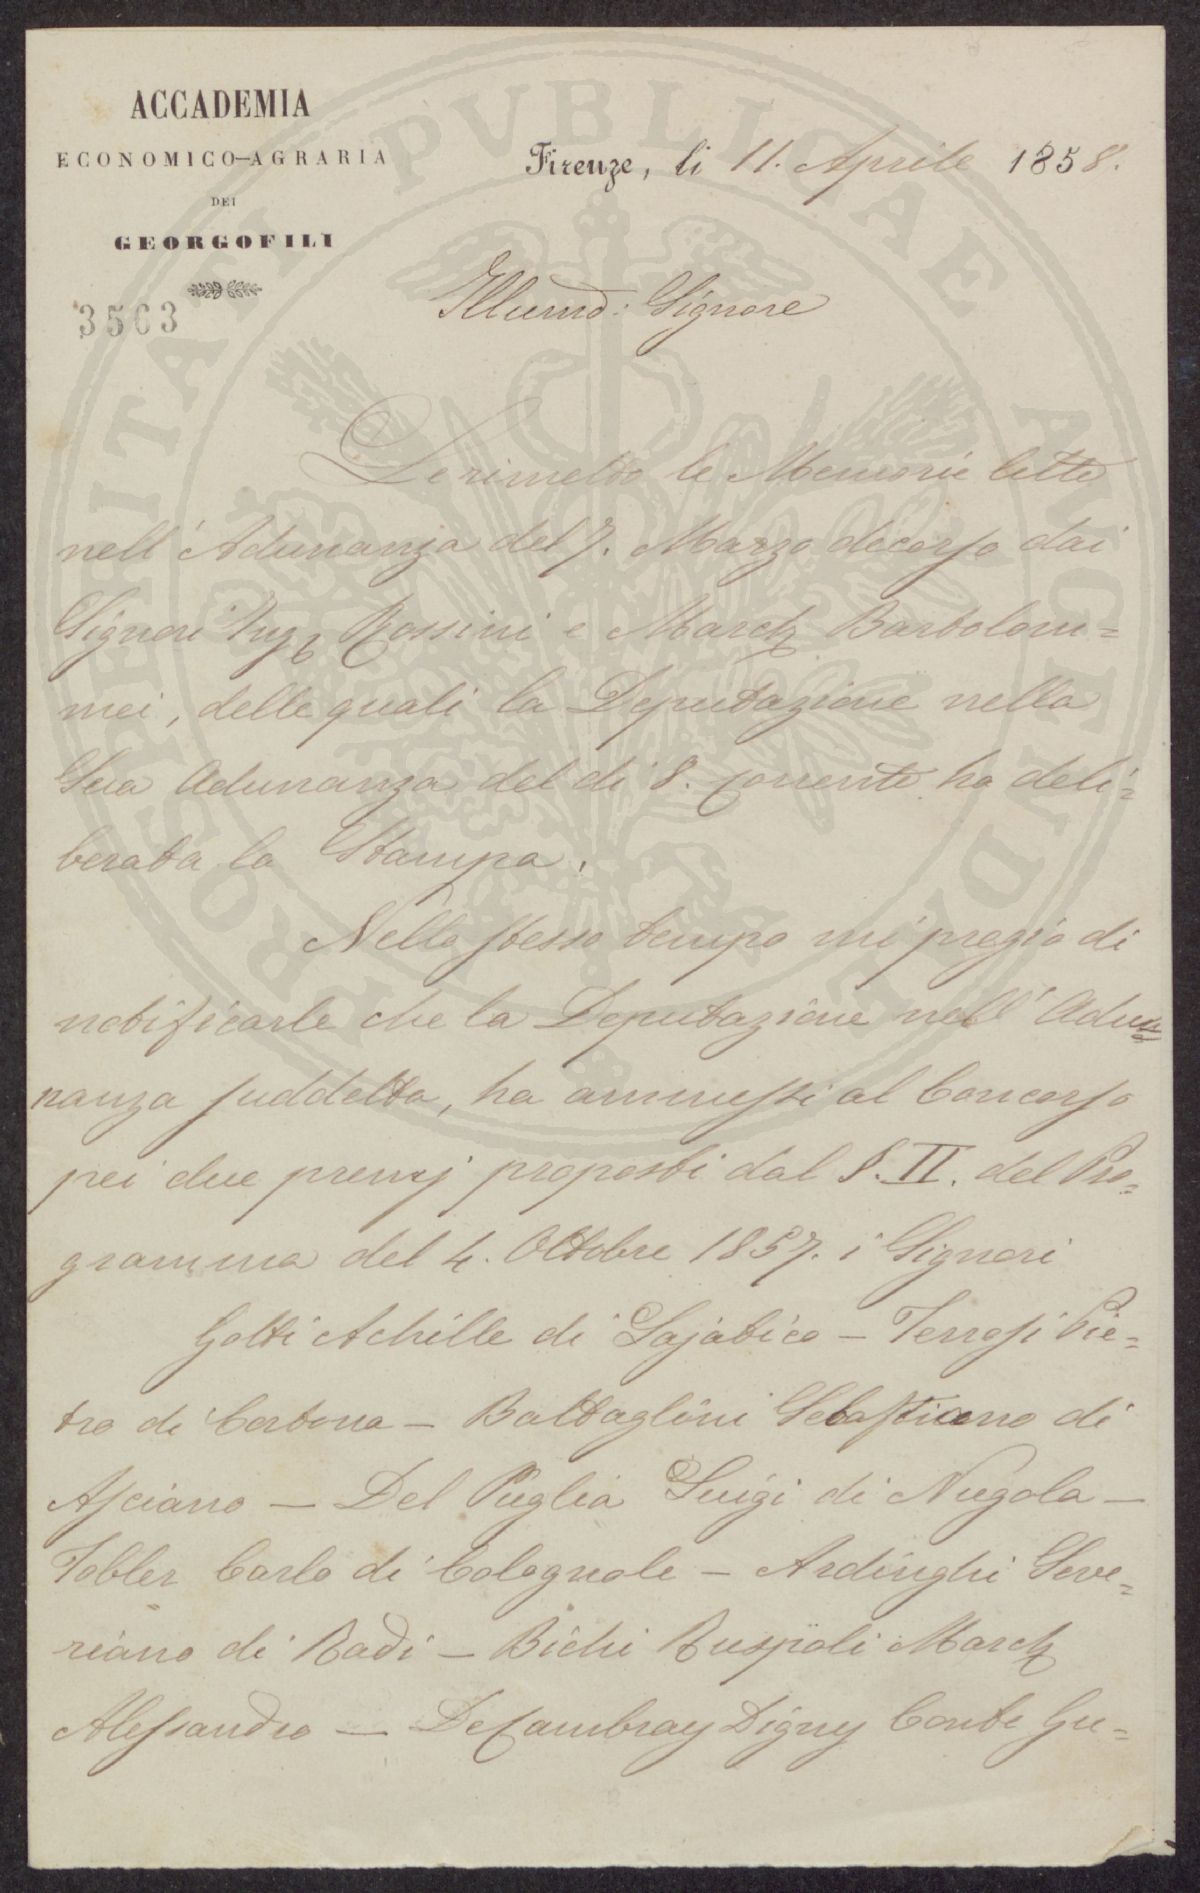 ACCADEMIA
ECONOMICO-AGRARIA
DEI
GEORGOFILI
3563
Firenze, li 11. Aprile 1858.
Illumo: Signore
Le rimetto le Memorie lette
nell'Adunanza del 7. Marzo decorso dai
Signori Ing Rossini e March Bartolom=
mei, delle quali la Deputazione nella
Sua Adunanza del di 8. corrente ha deli=
berata la Stampa.
Nello stesso tempo mi pregio di
notificarle che la Deputazione nell'Adu=
nanza suddetta, ha ammessi al Concorso
pei due premj proposti dal §. II. del Pro=
gramma del 4. Ottobre 1857. i Signori
Gotti Achille di Lajatico — Terrosi Pie=
tro di Cortona — Battaglini Sebastiano di
Asciano — Del Puglia Luigi di Nugola —
Tobler Carlo di Colognole — Ardinghi Seve=
riano di Radi — Bichi Ruspoli March
Alessandro — De Cambray Digny Conte Gu=
PROSPERITATI PVBLICAE AVGENDAE